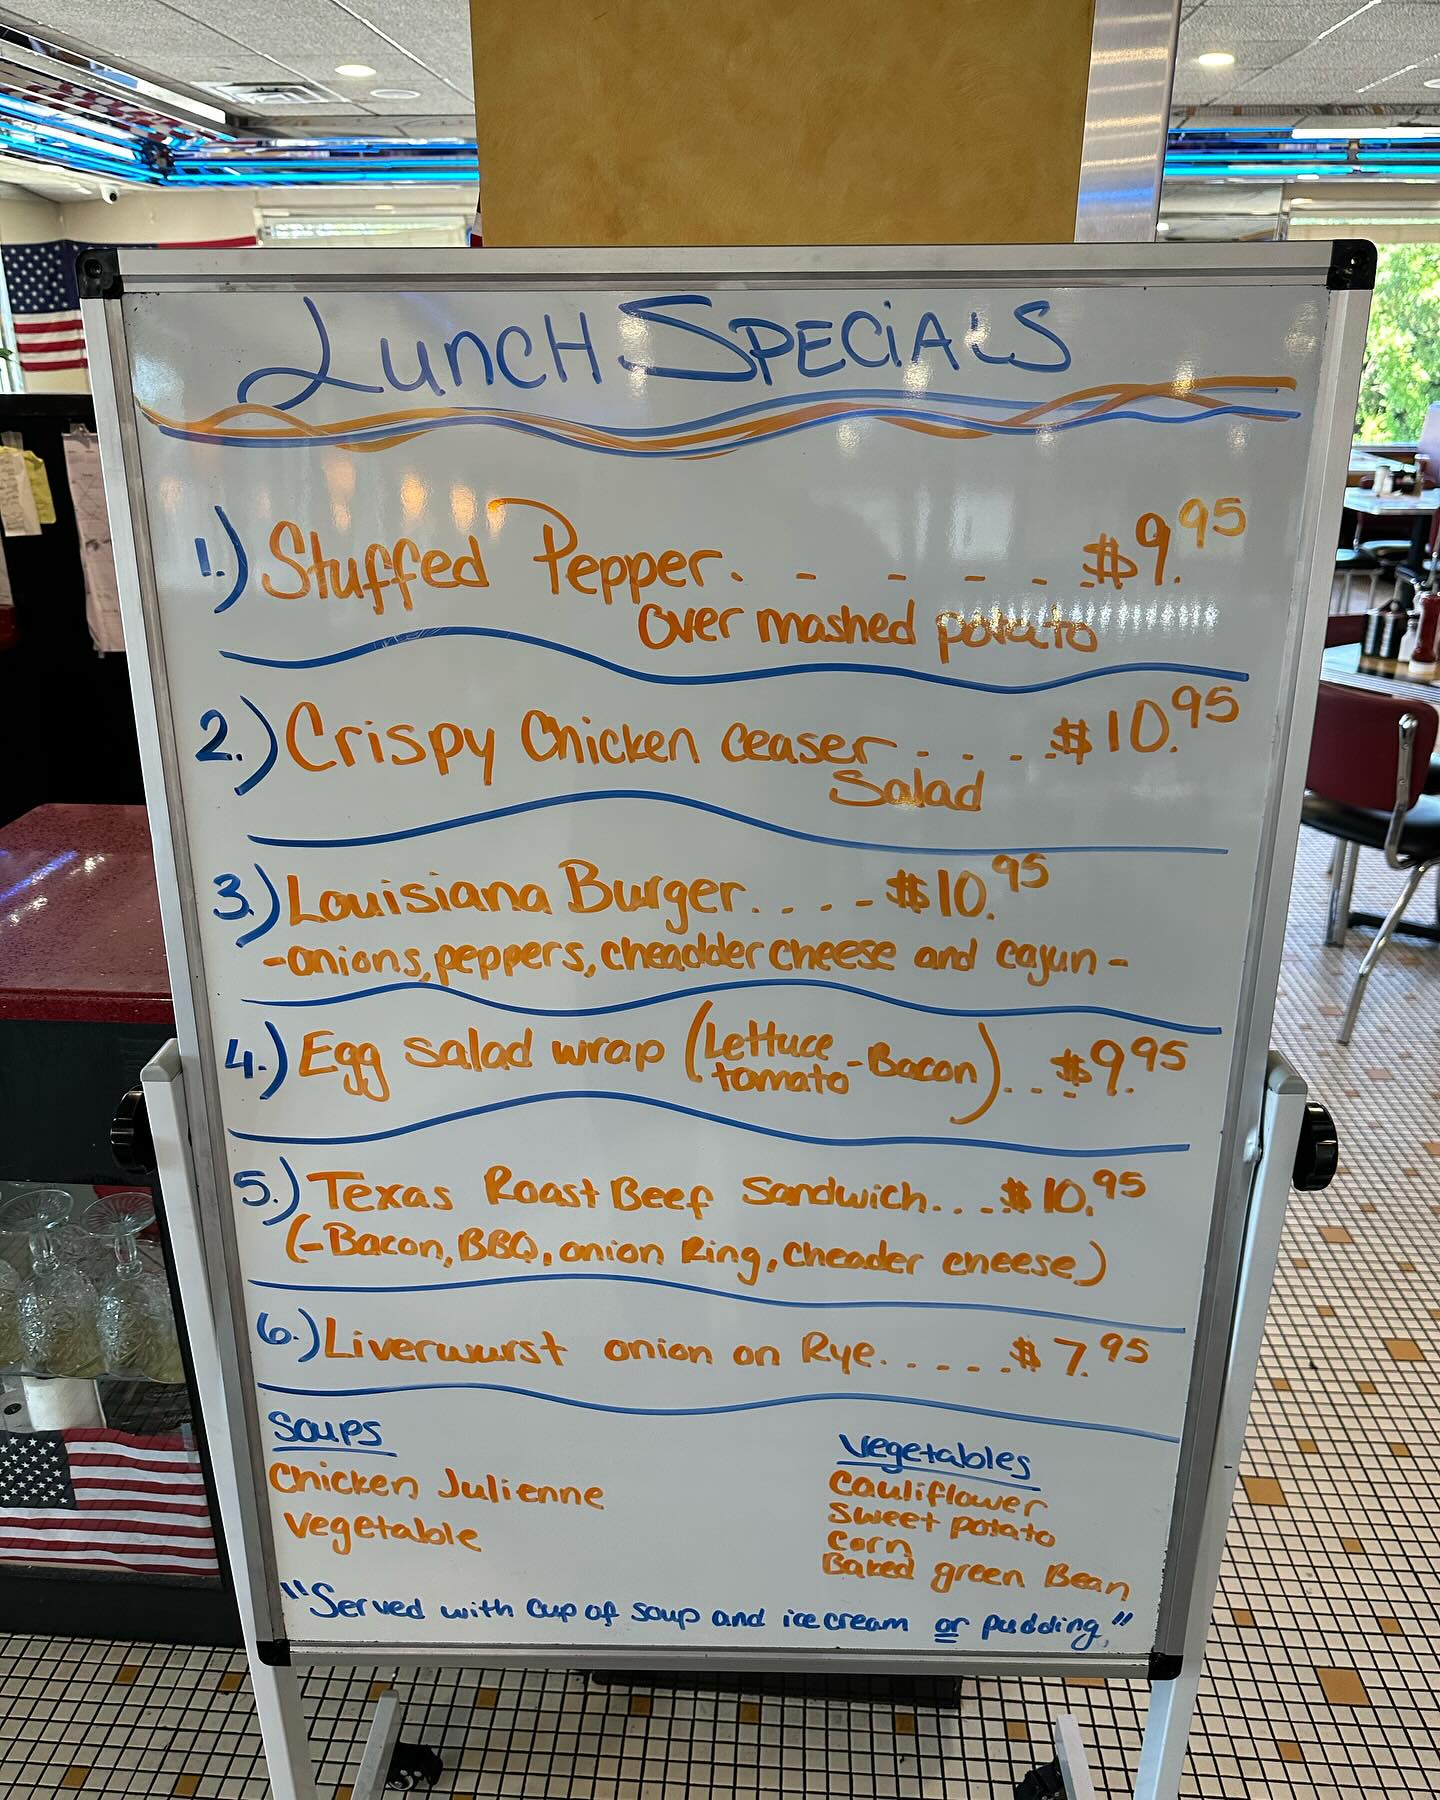 Lunch Specials
1.) Stuffed Pepper. - - - - . $9.95
over mashed potato
2.) Crispy Chicken Ceaser . . . . $10.95
Salad
3.) Louisiana Burger. . . . - $10.95
-onions, peppers, cheadder cheese and cajun-
4.) Egg salad wrap (Lettuce tomato - Bacon). . . $9.95
5.) Texas Roast Beef Sandwich. . . . $10.95
(-Bacon, BBQ, onion Ring, cheader cheese)
6.) Liverwurst onion on Rye. . . . . . $7.95
Soups
Chicken Julienne
vegetable
Vegetables
Cauliflower
Sweet potato
Corn
Baked green Bean
"Served with cup of soup and ice cream or pudding."